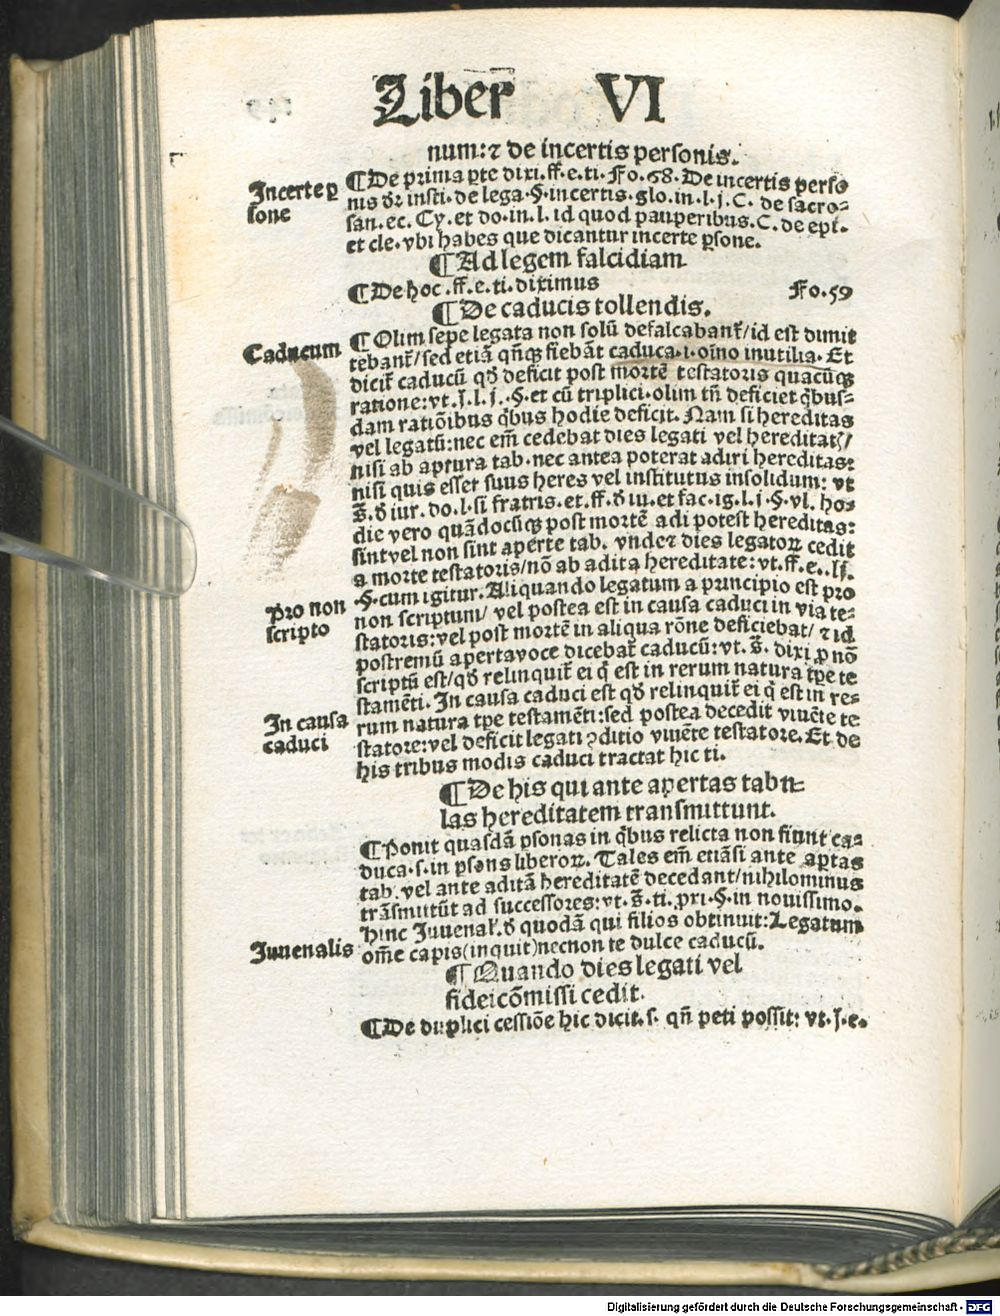 Liber VI
num:⁊ de incertis personis.
Incerte ꝑsone
¶De prima ꝑte dixi.ff.e.ti.Fo.68.De incertis perso
nis dr̄ insti.de lega.§.incertis.glo.in.l.j.C. de sacro-
san.ec. Cy.et do.in.l. id quod pauperibus.C. de epi.
et cle.vbi habes que dicantur incerte ꝑsone.
¶Ad legem falcidiam
¶De hoc.ff.e.ti.diximus Fo.59
¶De caducis tollendis.
Caducum
¶Olim sepe legata non solū defalcabant᷑/id est dimit
tebant᷑/sed etiā qn̄qꝫ fiebāt caduca.i.oīno inutilia. Et
dicit᷑ caducū qd̄ deficit post mortē testatoris quacūqꝫ
ratione:vt.j.l.j..§.et cū triplici.olim tn̄ deficiet q̄bus-
dam ratiōibus q̄bus hodie deficit. Nam si hereditas
vel legatū:nec em̄ cedebat dies legati vel hereditat̄/
nisi ab aptura tab.nec antea poterat adiri hereditas:
nisi quis esset suus heres vel institutus insolidum: vt
s̄.d̄ iur.do.l.si fratris.et.ff.d̄ iu.et fac.ig.l.j.§.vl. ho-
die vero quādocūqꝫ post mortē adi potest hereditas:
sint vel non sint aperte tab. vnde⁊ dies legatoꝝ cedit
a morte testatoris/nō ab adita hereditate:vt.ff.e..lj.
Pro non scripto
.§.cum igitur.Aliquando legatum a principio est pro
non scriptum/ vel postea est in causa caduci in via te-
statoris:vel post mortē in aliqua rōne deficiebat/ ⁊ id
postremū aperta voce dicebat᷑ caducū:vt.s̄. dixi ꝓ nō
scriptū est/qd̄ relinquit᷑ ei q̄ est in rerum natura tꝑe te
stamēti. In causa caduci est qd̄ relinquit᷑ ei q̄ est in re-
In causa caduci
rum natura tꝑe testamēti:sed postea decedit viuēte te
statore:vel deficit legati ꝯditio viuēte testatore. Et de
his tribus modis caduci tractat hic ti.
¶De his qui ante apertas tabu-
las hereditatem transmittunt.
¶Ponit quasdā ꝑsonas in q̄bus relicta non fiunt ca-
duca.s.in ꝑsons liberoꝝ. Tales em̄ etiāsi ante aꝑtas
tab. vel ante aditā hereditatē decedant/nihilominus
trāsmittūt ad successores:vt.s̄.ti.ꝓxi.§.in nouissimo.
Iuuenalis
hinc Iuuenal᷑.d̄ quodā qui filios obtinuit:Legatum
om̄e capis(inquit)necnon te dulce caducū.
¶Quando dies legati vel
fideicōmissi cedit.
¶De duplici cessiōe hic dicit.s. qn̄ peti possit: vt.j.e.
Digitalisierung gefördert durch die Deutsche Forschungsgemeinschaft - DFG